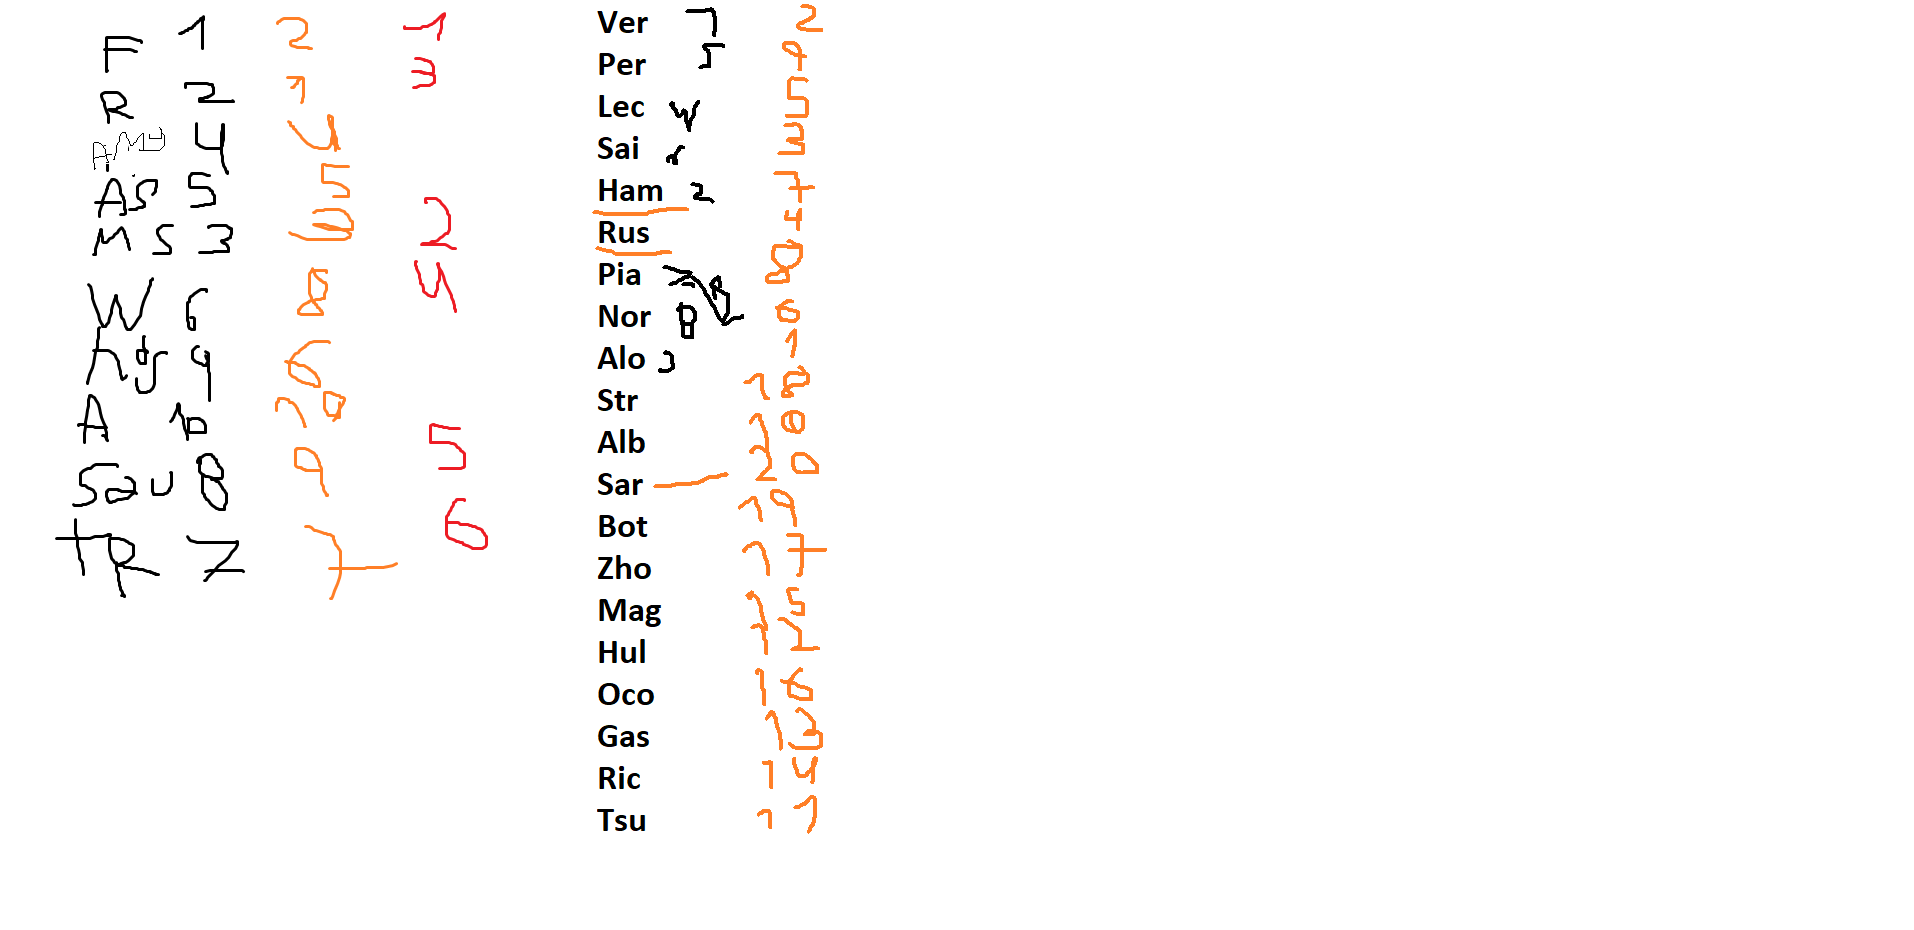 F 1 2 1
R 2 1 3
AMG 4 4
AS 5 5
MS 3 10 2
W 6 8 4
A 9 6
A 10
Sau 8 9 5
TR 7 7 6
Ver 2
Per 5 9
Lec 5
Sai 3
Ham 2 7
Rus 4
Pia 8
Nor 8 6
Alo 3 1
Str 18
Alb 10
Sar 20
Bot 19
Zho 17
Mag 15
Hul 12
Oco 16
Gas 13
Ric 14
Tsu 11